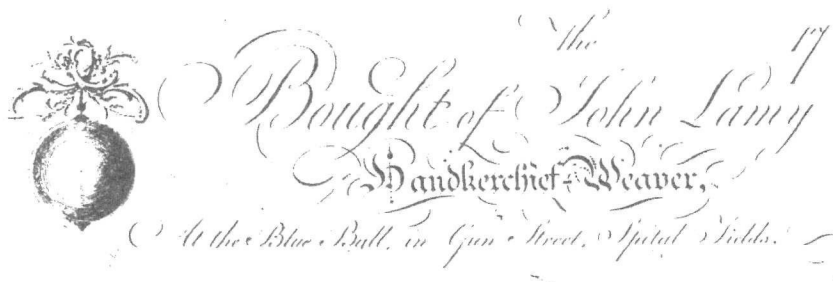 The 17
Bought of John Lamy
Handkerchief-Weaver,
At the Blue Ball, in Gun Street, Spital Fields.